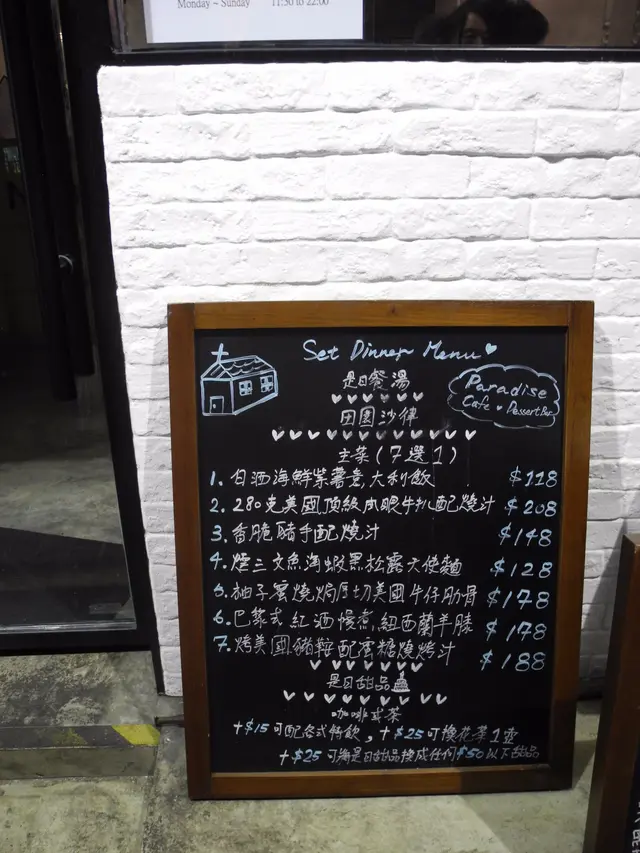 Monday ~ Sunday 11:30 to 22:00
Set Dinner Menu
是日餐湯
Paradise
Cafe Dessert Bar
田園沙律
主菜(7選1)
1. 白酒海鮮紫薯意大利飯 $118
2. 280克美國頂級肉眼牛扒配燒汁 $208
3. 香脆豬手配燒汁 $148
4. 煙三文魚海蝦黑松露天使麵 $128
5. 柚子蜜燒焗厚切美國牛仔肋骨 $178
6. 巴黎式紅酒慢煮紐西蘭羊膝 $178
7. 烤美國豬鞍配蜜糖燒烤汁 $188
是日甜品
咖啡或茶
+$15可配各式特飲, +$25可換花茶1壺
+$25可將是日甜品換成任何$50以下甜品